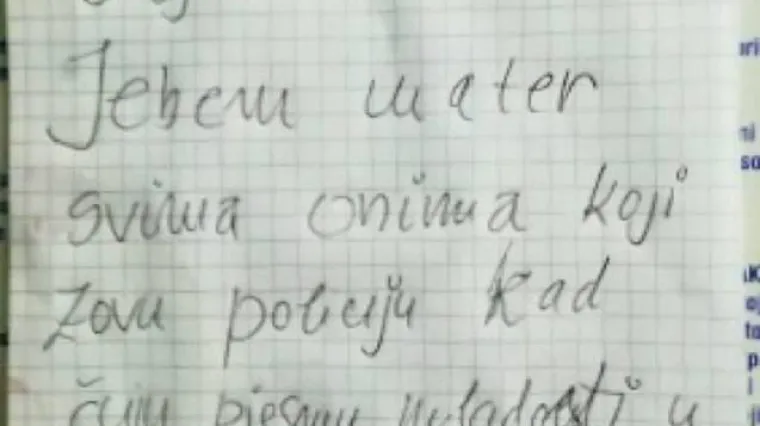 Jebem mater
svima onima koji
zovu policiju kad
čuju pjesmu mladosti u